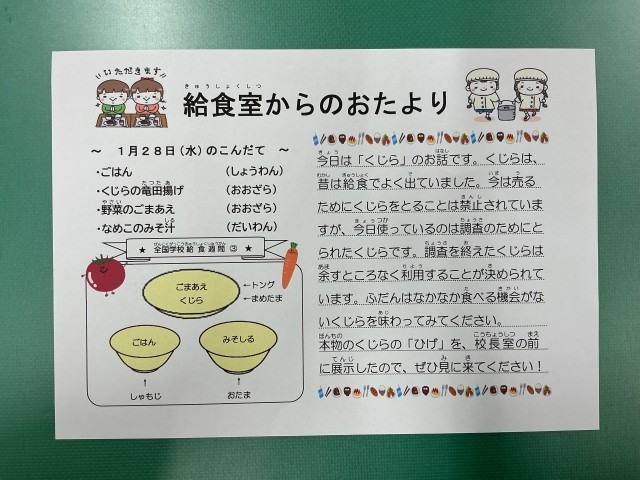 いただきます
給食室からのおたより
～ 1月28日(水)のこんだて ～
・ごはん (しょうわん)
・くじらの竜田揚げ (おおざら)
・野菜のごまあえ (おおざら)
・なめこのみそ汁 (だいわん)
★ 全国学校給食週間③ ★
ごまあえ
くじら
←トング
←まめたま
ごはん
みそしる
↑
しゃもじ
↑
おたま
今日は「くじら」のお話です。くじらは、
昔は給食でよく出ていました。今は売る
ためにくじらをとることは禁止されていま
すが、今日使っているのは調査のためにと
られたくじらです。調査を終えたくじらは
余すところなく利用することが決められて
います。ふだんはなかなか食べる機会がな
いくじらを味わってみてください。
本物のくじらの「ひげ」を、校長室の前
に展示したので、ぜひ見に来てください！